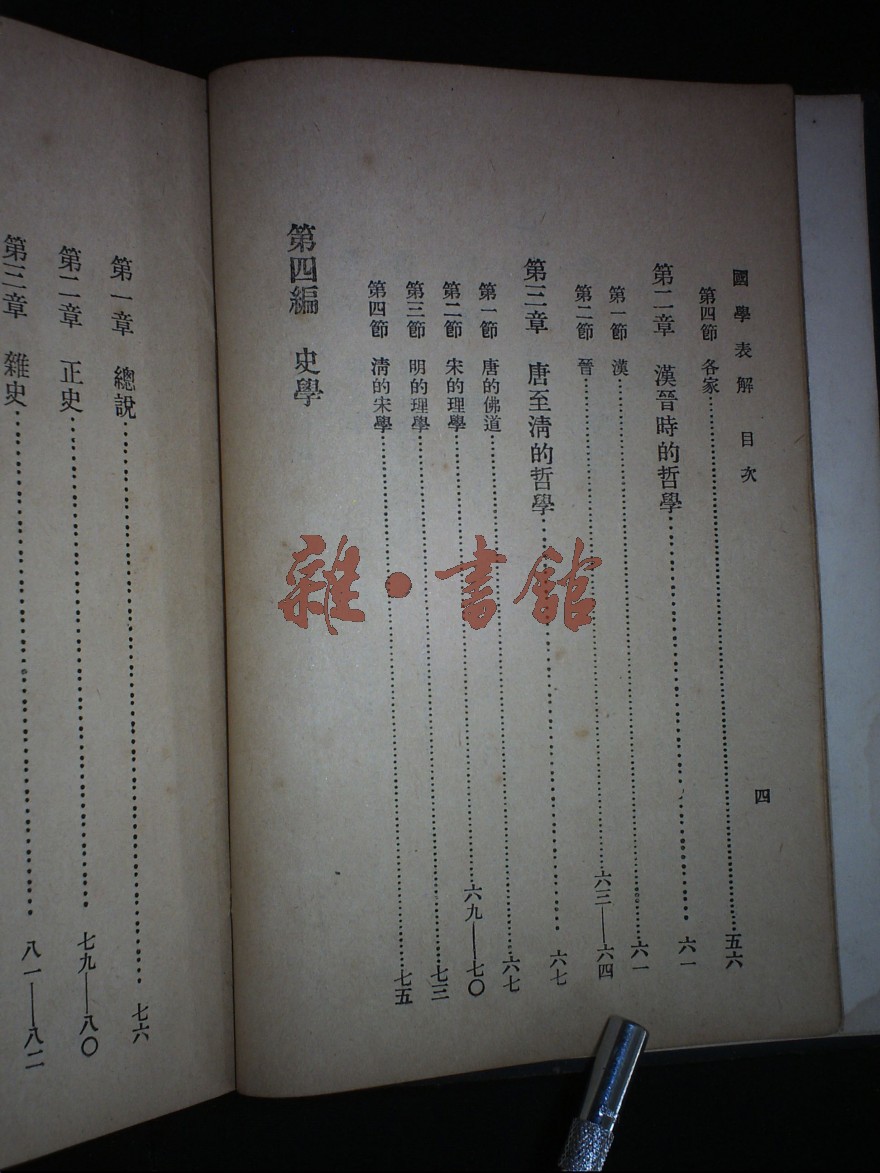 國學表解 目次
四
第四節 各家……五六
第二章 漢晉時的哲學……六一
第一節 漢……六一
第二節 晉……六三——六四
第三章 唐至清的哲學……六七
第一節 唐的佛道……六七
第二節 宋的理學……六九——七〇
第三節 明的理學……七三
第四節 清的宋學……七五
第四編 史學
第一章 總說……七六
第二章 正史……七九——八〇
第三章 雜史……八一——八二
雜·書館